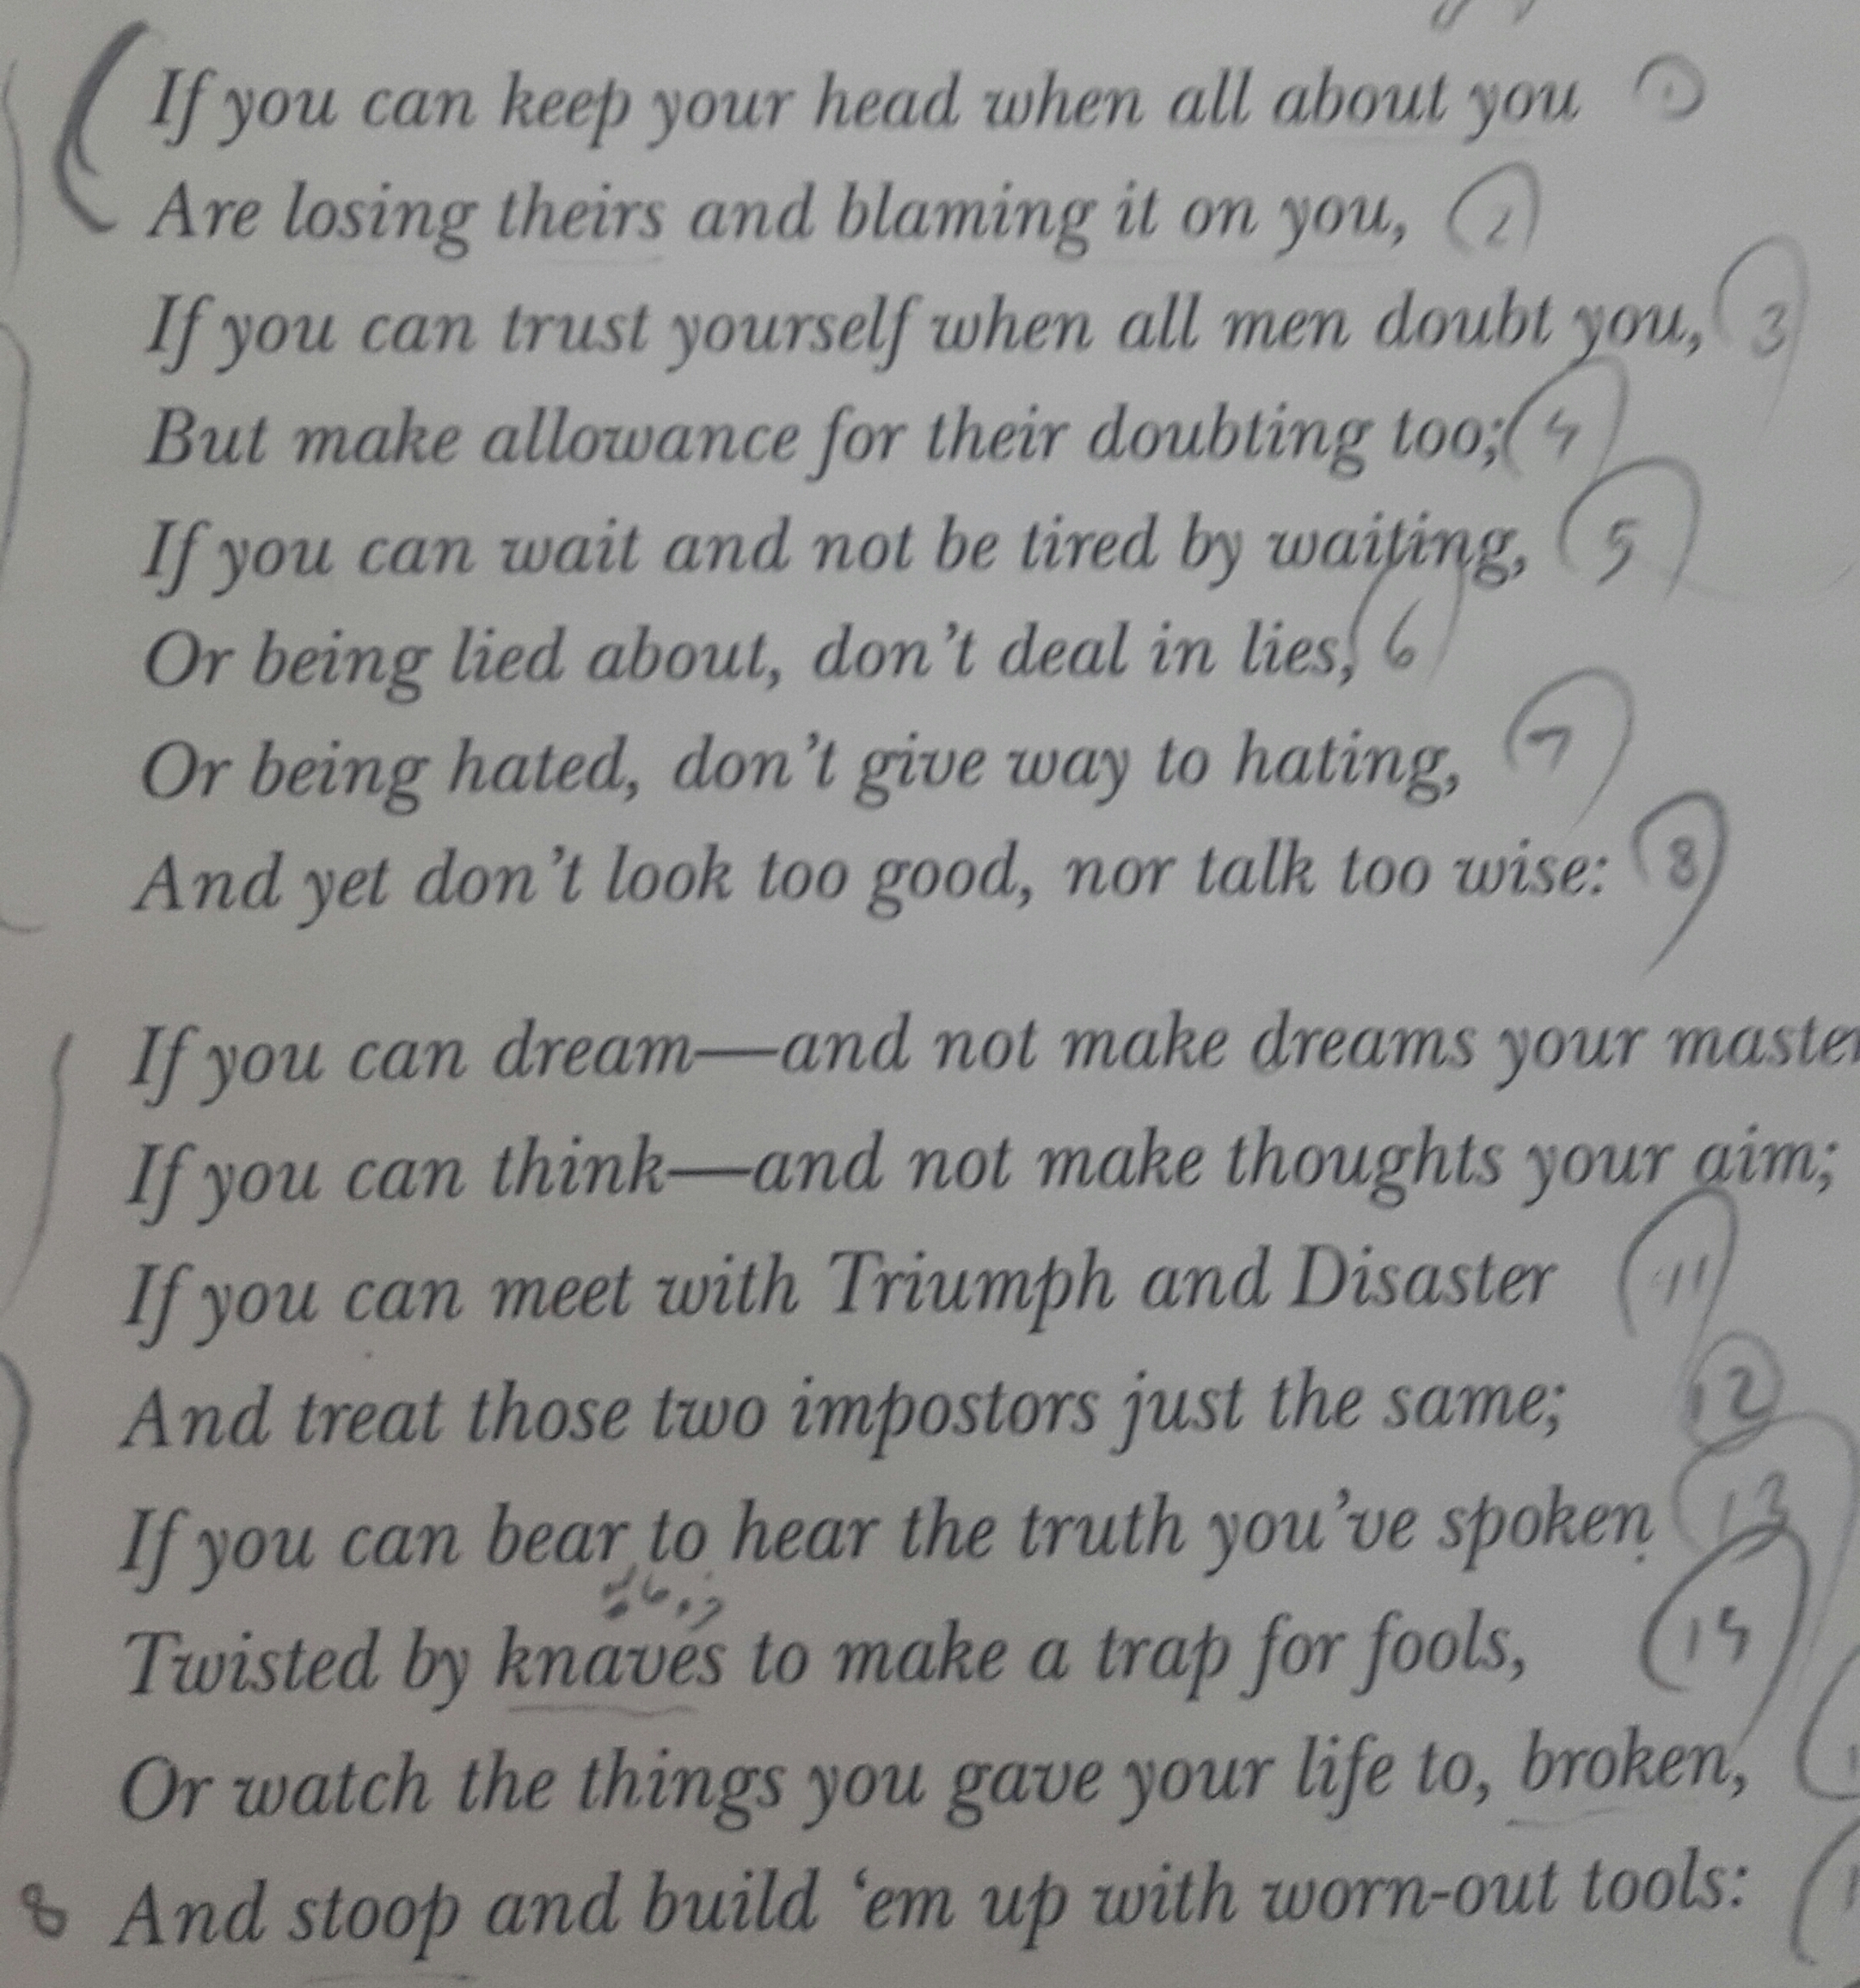 If you can keep your head when all about you 1
Are losing theirs and blaming it on you, 2
If you can trust yourself when all men doubt you, 3
But make allowance for their doubting too; 4
If you can wait and not be tired by waiting, 5
Or being lied about, don’t deal in lies, 6
Or being hated, don’t give way to hating, 7
And yet don’t look too good, nor talk too wise: 8
If you can dream—and not make dreams your master
If you can think—and not make thoughts your aim;
If you can meet with Triumph and Disaster 11
And treat those two impostors just the same; 12
If you can bear to hear the truth you’ve spoken 13
Twisted by knaves to make a trap for fools, 14
Or watch the things you gave your life to, broken,
8 And stoop and build ‘em up with worn-out tools: